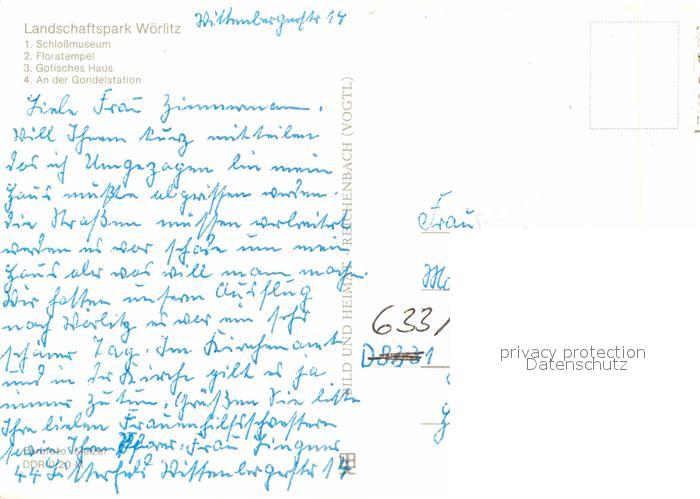 Landschaftspark Wörlitz
1. Schloßmuseum
2. Floratempel
3. Gotisches Haus
4. An der Gondelstation
Wittenbergerstr 14
Liebe Frau Zimmermann,
Will Ihnen kurz mitteilen
das ich Umgezogen bin mein
Haus mußte abgerissen werden.
die Straßen müssen verbreitert
werden es war schade um mein
Haus aber was will man mache.
Wir hatten unsern Ausflug
nach Wörlitz es war ein sehr
schöner Tag. Im Kirchenamt
und in der Kirche gibt es ja
immer zu tun. Grüßen Sie bitte
Ihre lieben Frauenhilfsschwestern
Ihre Frau
44 Bitterfeld Wittenbergerstr 14
DDR 0,20 M
BILD UND HEIMAT REICHENBACH (VOGTL)
Frau
633
privacy protection
Datenschutz